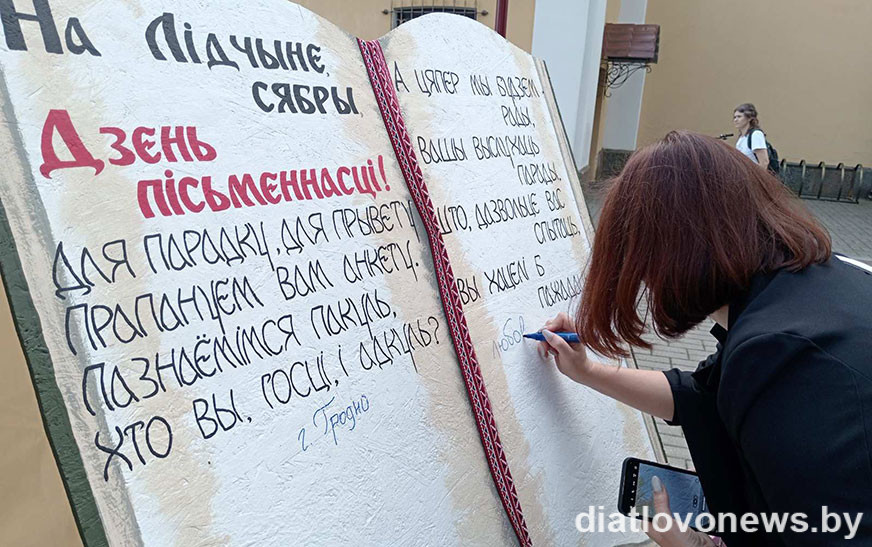 На Лідчыне,
сябры,
Дзень
пісьменнасці!
Для парадку, для прывету
прапануем вам анкету.
Пазнаёмімся пакуль,
хто вы, госці, і адкуль?
г. Гродно
А цяпер мы будзем
рады,
вашы выслухаць
парады.
што, дазвольце вас
спытаць,
вы хацелі б
пажадаць
любов
diatlovonews.by